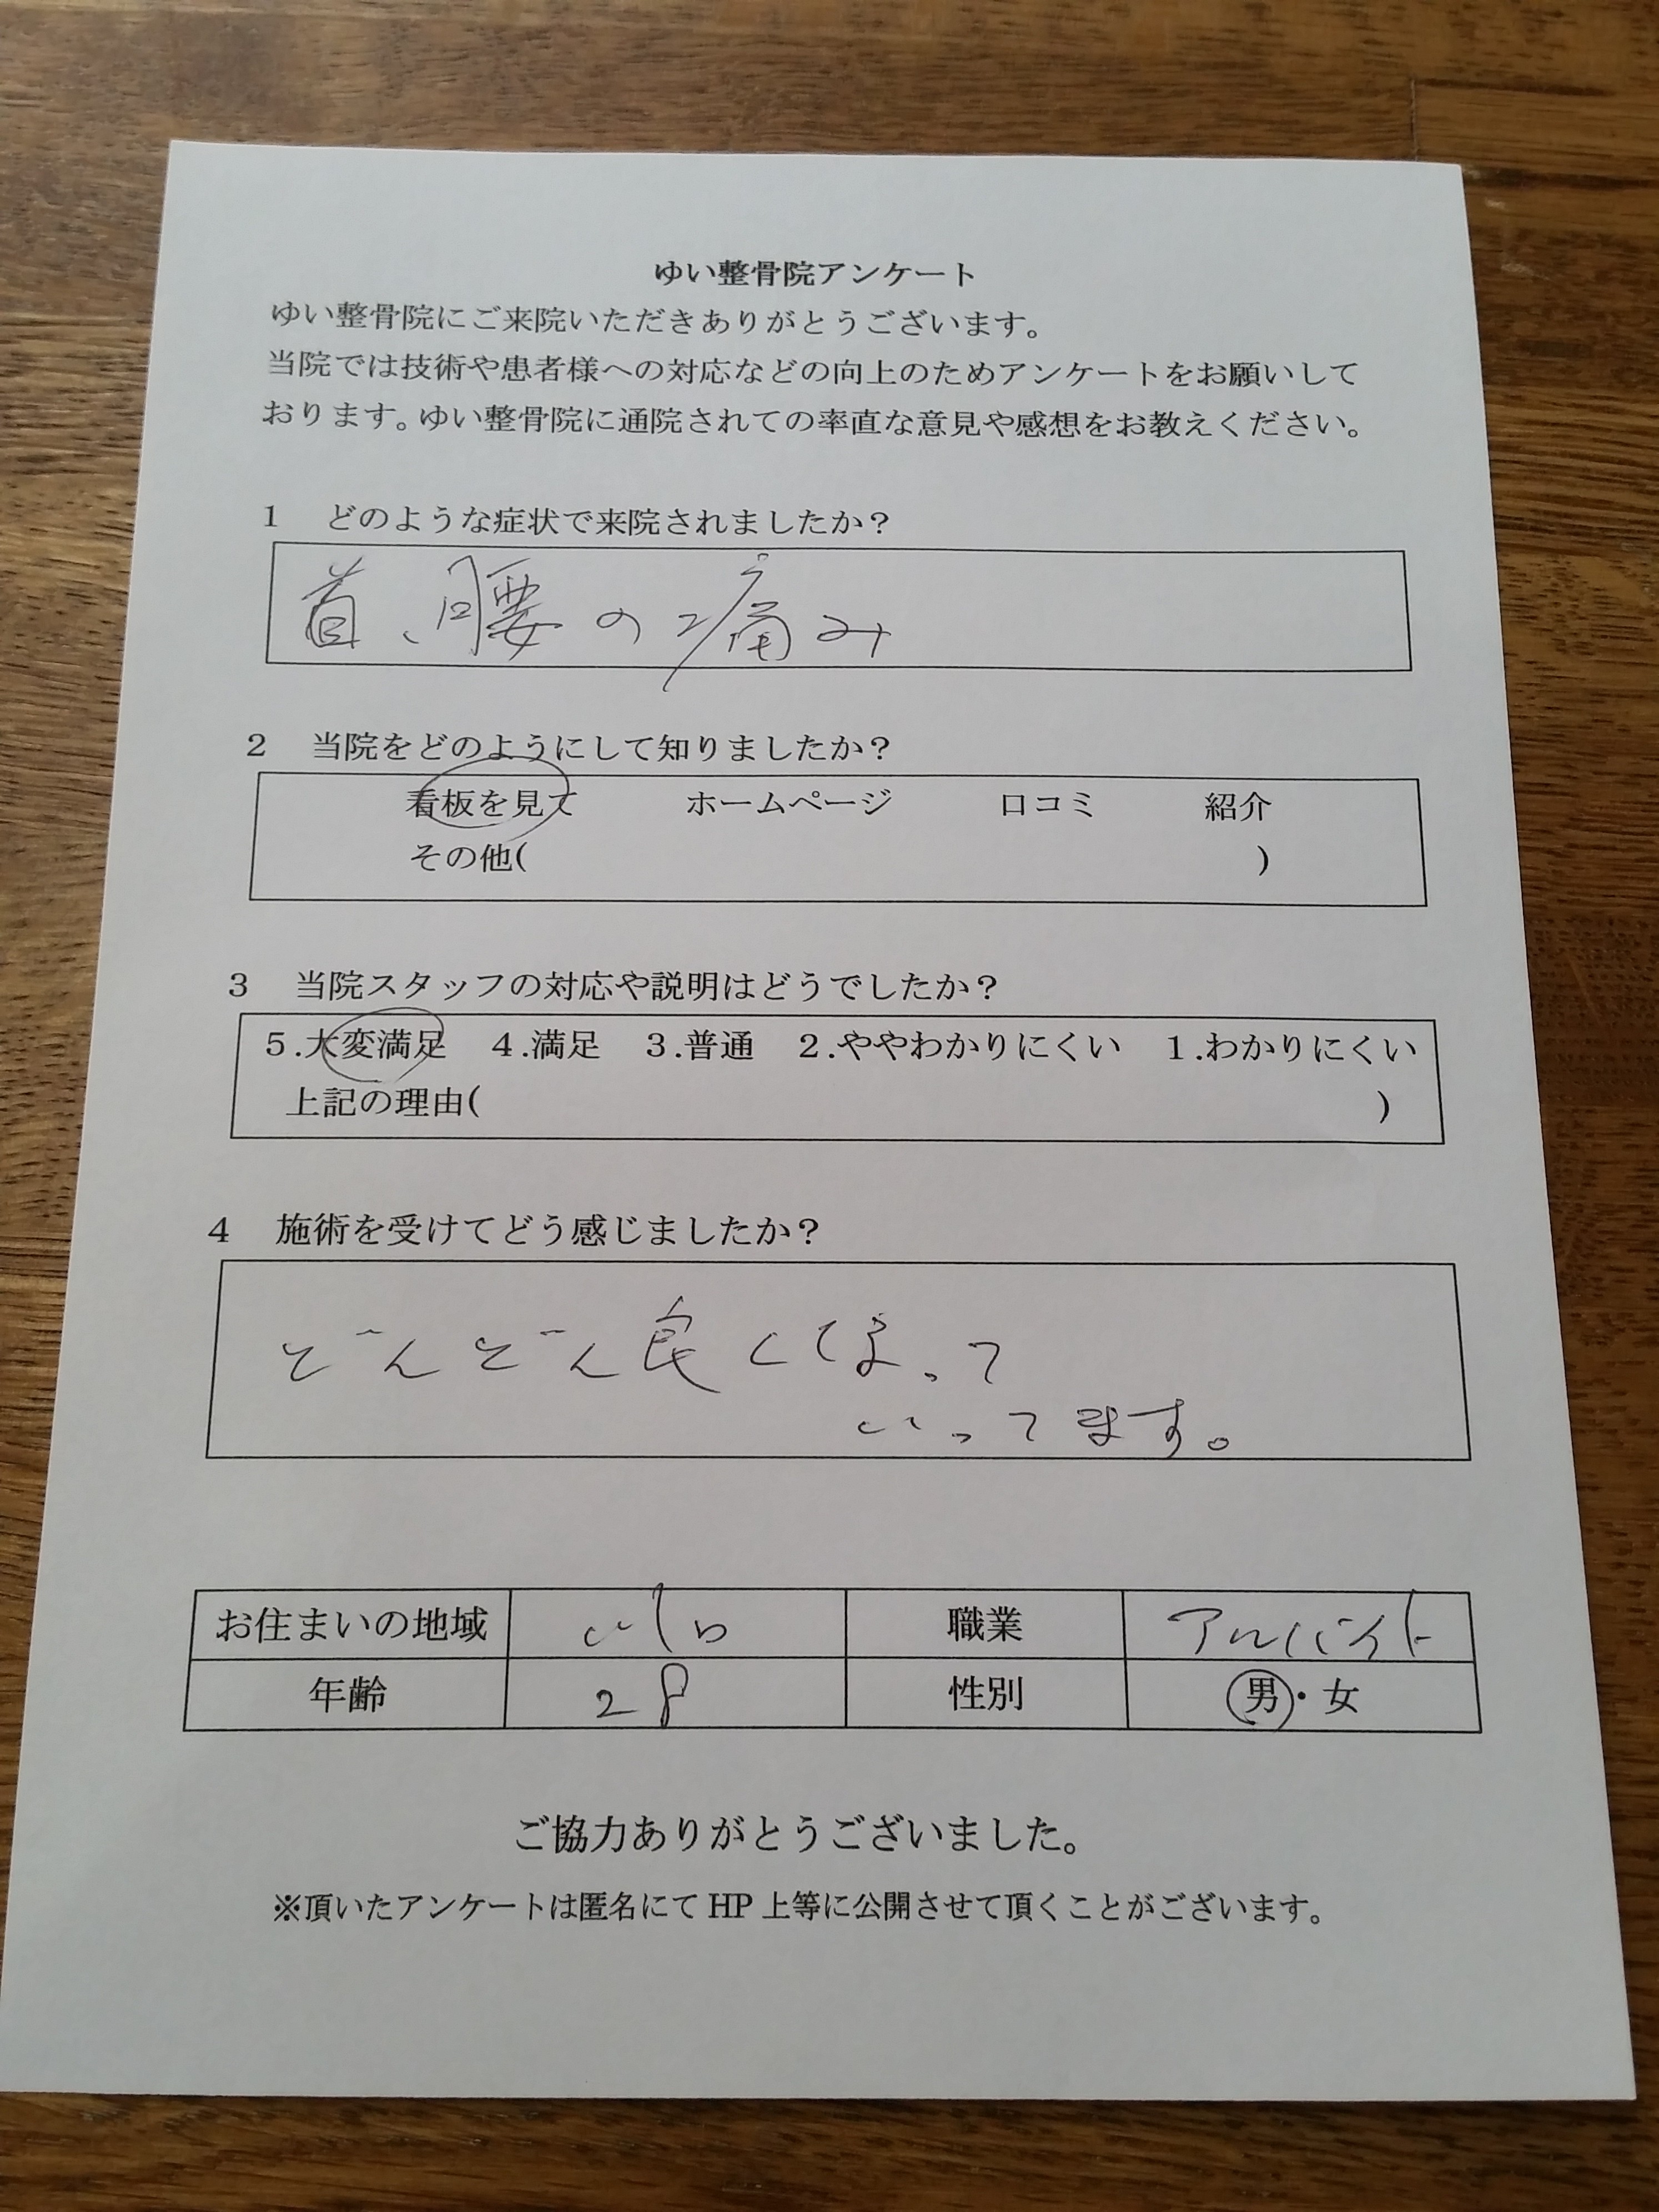 ゆい整骨院アンケート
ゆい整骨院にご来院いただきありがとうございます。
当院では技術や患者様への対応などの向上のためアンケートをお願いして
おります。ゆい整骨院に通院されての率直な意見や感想をお教えください。
1 どのような症状で来院されましたか？
首、腰の痛み
2 当院をどのようにして知りましたか？
看板を見て ホームページ 口コミ 紹介
その他( )
3 当院スタッフの対応や説明はどうでしたか？
5.大変満足 4.満足 3.普通 2.ややわかりにくい 1.わかりにくい
上記の理由( )
4 施術を受けてどう感じましたか？
どんどん良くなって
いってます。
お住まいの地域 職業 アルバイト
年齢 28 性別 男・女
ご協力ありがとうございました。
※頂いたアンケートは匿名にて HP 上等に公開させて頂くことがございます。